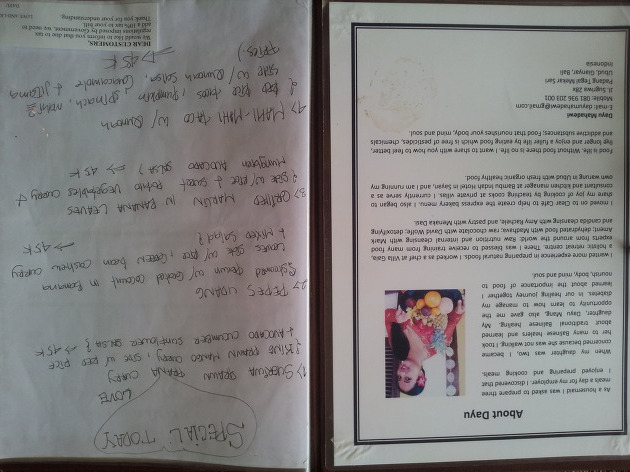 About Dayu
As a housemaid I was asked to prepare three
meals a day for my employer. I discovered that
I enjoyed preparing and cooking meals.
When my daughter was two, I became
concerned because she was not walking. I took
her to many Balinese healers and learned
about traditional Balinese healing. My
daughter, Dayu Wang, also gave me the
opportunity to learn how to manage my
diabetes. In our healing journey together I
learned about the importance of food to
nourish, body, mind and soul.
I wanted more experience in preparing natural foods. I worked as a chef at Villa Gaia,
a holistic retreat centre. There I was blessed to receive training from many food
experts from around the world: Raw nutrition and internal cleansing with Mark
Ament; dehydrated food with Madhavi; raw chocolate with David Wolfe, detoxifying
and candida cleansing with Amy Rachelle, and pastry with Meneka Dasi.
I moved on to Clear Café to help create the express bakery menu. I also began to
share my joy of cooking by teaching cooks at private villas. I currently serve as a
consultant kitchen manager at Bambu Indah Hotel in Sayan, and I am running my
own warung in Ubud with fresh organic healthy food.
Food is life. Without food there is no life. I want to share with you how to feel better,
live longer and enjoy a fuller life by eating food which is free of pesticides, chemicals
and addictive substances; Food that nourishes your body, mind and soul.
Dayu Mahadewi
E-mail: dayumahadewi@gmail.com
Mobile: 081 936 203 001
Jl. Sugriwa 28x
Padang Tegal Mekar Sari
Ubud, Gianyar, Bali,
Indonesia
SPECIAL TODAY
LOVE
1) SUGRIWA PRAWN PRANA CURRY
{ KING PRAWN MANGO CURRY, SIDE W/ RED RICE
& AVOCADO CUCUMBER SUNFLOWER SALSA } => 45K
2) PEPES UDANG
{ STEAMED PRAWN w/ Grated COCONUT in BANANA
LEAVES SIDE W/ RICE, GREEN BEAN CASHEW CURRY
& MIXED SALAD } => 45K
3) GRILLED MARLIN IN BANANA LEAVES
{ SIDE W/ RICE & SWEET POTATO VEGETABLES CURRY &
MUNGBEAN AVOCADO SALSA } => 45K
4) MAHI-MAHI TACO W/
{ RED RICE TACOS, PUMPKIN, SPINACH,
SIDE W/ SALSA GUACAMOLE & JICAMA
FRIES } => 45K
DEAR CUSTOMERS,
We would like to inform you that due to tax
regulations imposed by Government, we need to
add a 10% tax to your bill.
Thank you for your understanding.
LOVE AND